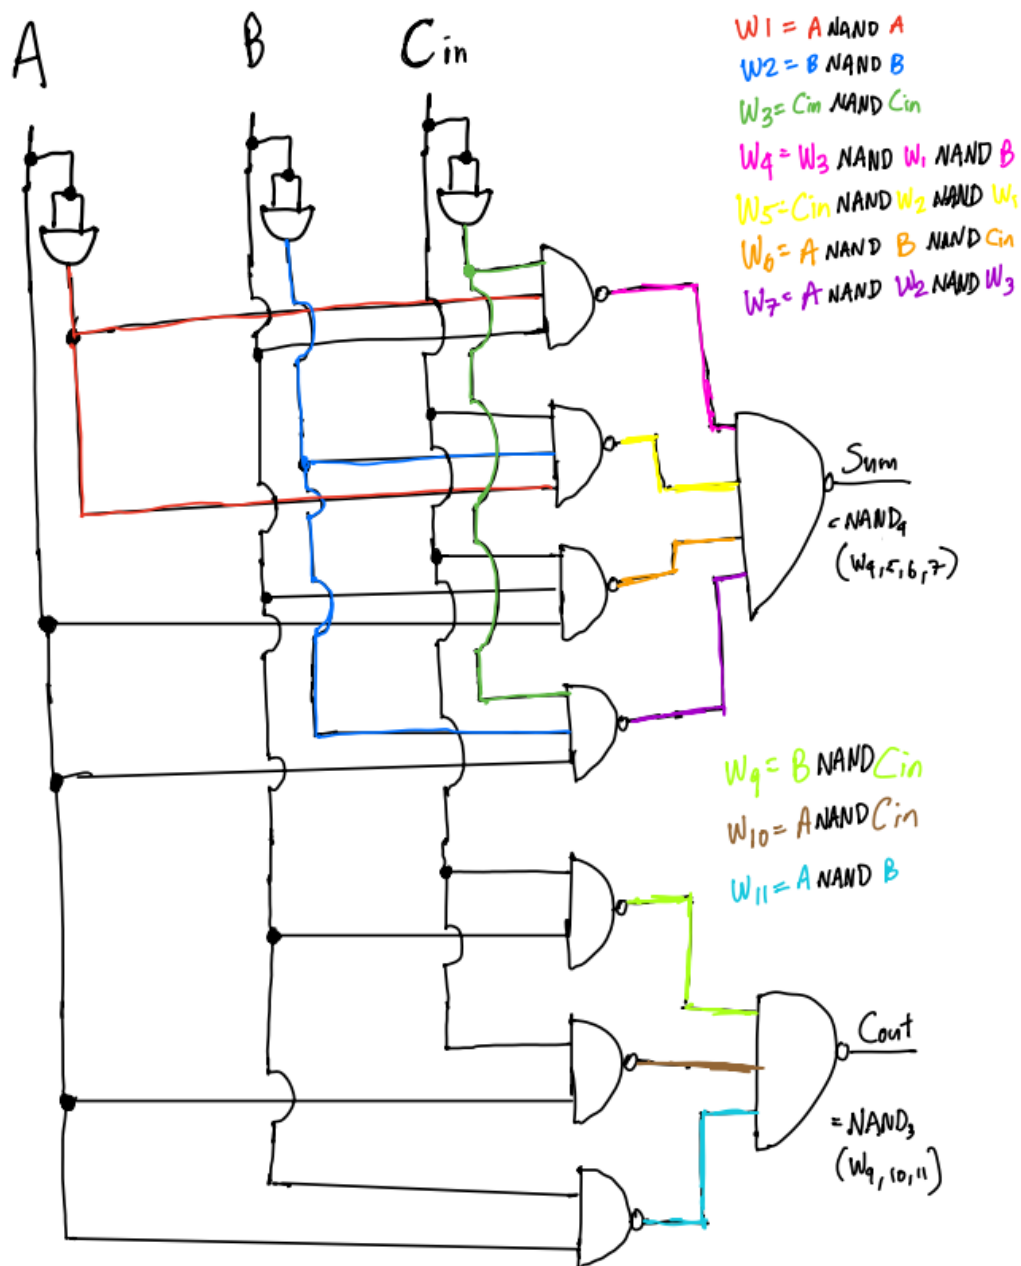 A B Cin
W1 = A NAND A
W2 = B NAND B
W3 = Cin NAND Cin
W4 = W3 NAND W1 NAND B
W5 = Cin NAND W2 NAND W1
W6 = A NAND B NAND Cin
W7 = A NAND W2 NAND W3
Sum
= NAND4
(W4,5,6,7)
W9 = B NAND Cin
W10 = A NAND Cin
W11 = A NAND B
Cout
= NAND3
(W9,10,11)